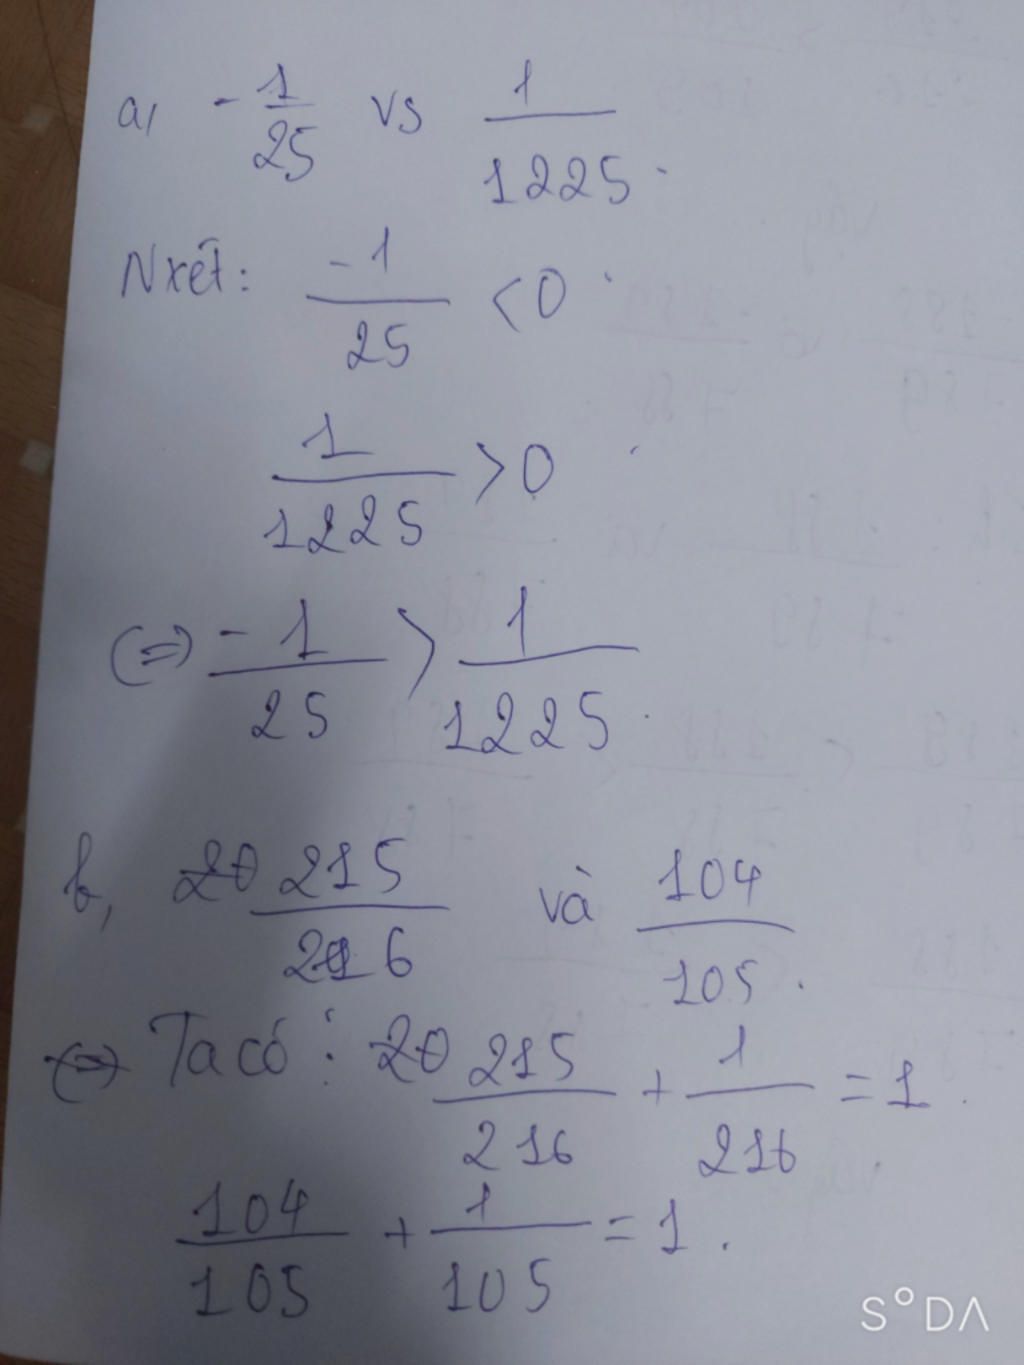 a, -1/25 vs 1/1225.
Nxét: -1/25 < 0
1/1225 > 0
(=) -1/25 > 1/1225.
b, 20 215/216 và 104/105.
(=) Ta có: 20 215/216 + 1/216 = 1.
104/105 + 1/105 = 1.
SODA